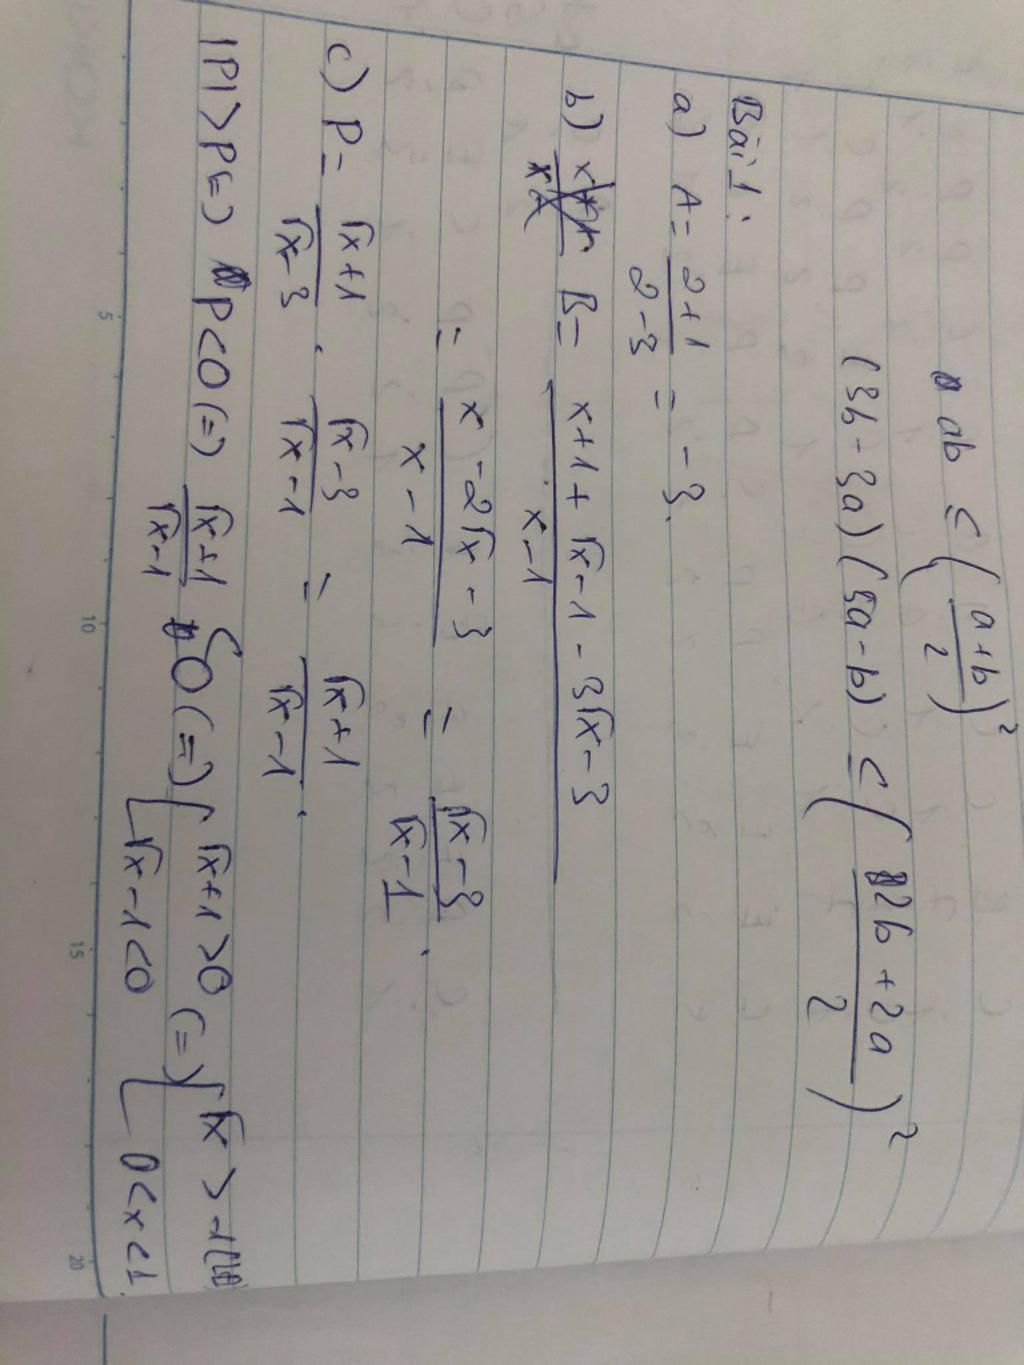 ab ≤ (a+b/2)²
(3b-3a)(5a-b) ≤ (2b+2a/2)²
Bài 1:
a) A = 2+1/2-3 = -3.
b) B = x+1+√x-1-3√x-3/x-1
= x-2√x-3/x-1 = √x-3/√x-1.
c) P = √x+1/√x-3 . √x-3/√x-1 = √x+1/√x-1.
|P| > P (=) P<0 (=) √x+1/√x-1 <0 (=) { √x+1>0 (=) { √x > -1
√x-1<0 0<x<1.
5
10
15
20